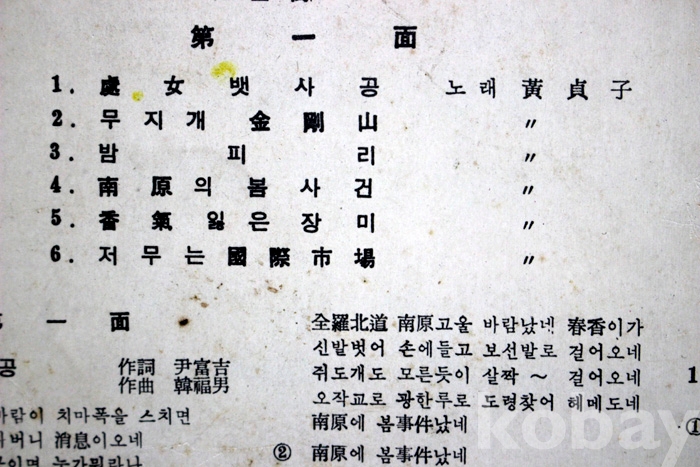 第 一 面
1. 處女뱃사공 노래 黃貞子
2. 무지개 金剛山 〃
3. 밤피리 〃
4. 南原의 봄사건 〃
5. 香氣잃은 장미 〃
6. 저무는 國際市場 〃
一 面
공 作詞 尹富吉
作曲 韓福男
바람이 치마폭을 스치면
버니 消息이오네
全羅北道 南原고울 바람났네 春香이가
신발벗어 손에들고 보선발로 걸어오네
쥐도개도 모른듯이 살짝 〜 걸어오네
오작교로 광한루로 도령찾어 헤메도네
南原에 봄事件났네
② 南原에 봄事件났네
1
①
kobay